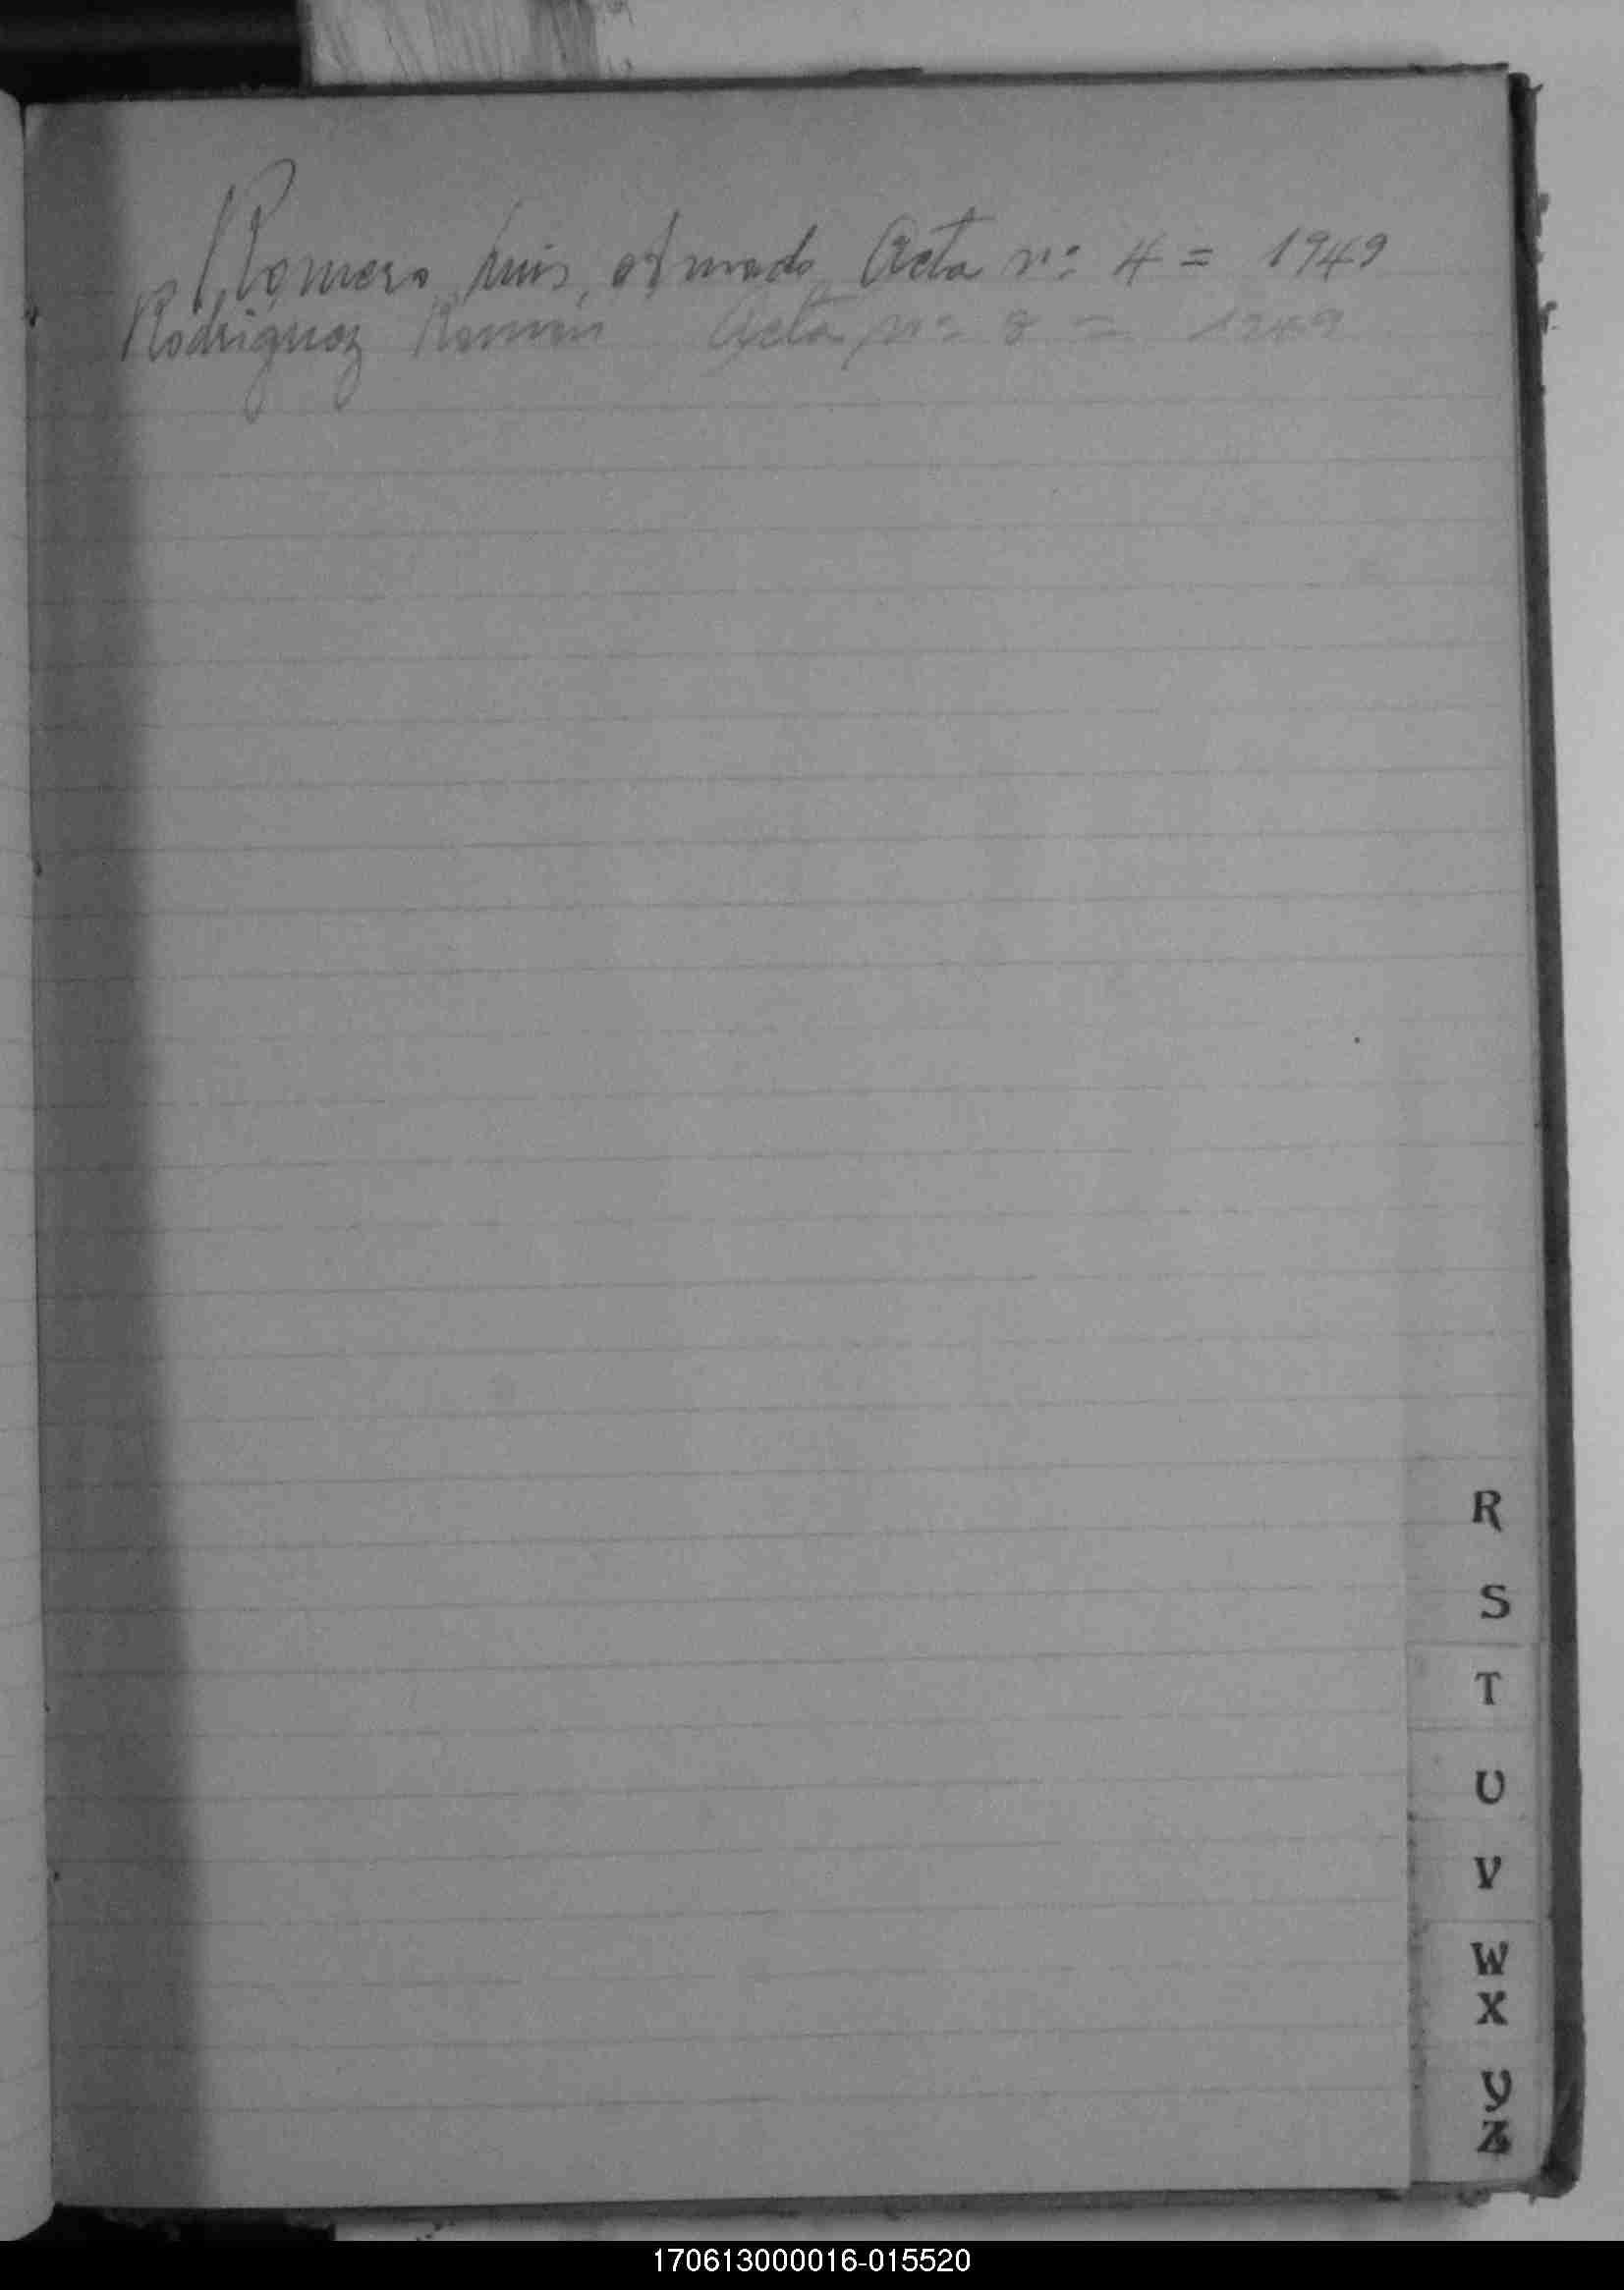 Romero, Luis, Armado Acta nº 4 = 1949
Rodriguez Ramón Acta nº 8 = 1949
R
S
T
U
V
W
X
Y
Z
170613000016-015520